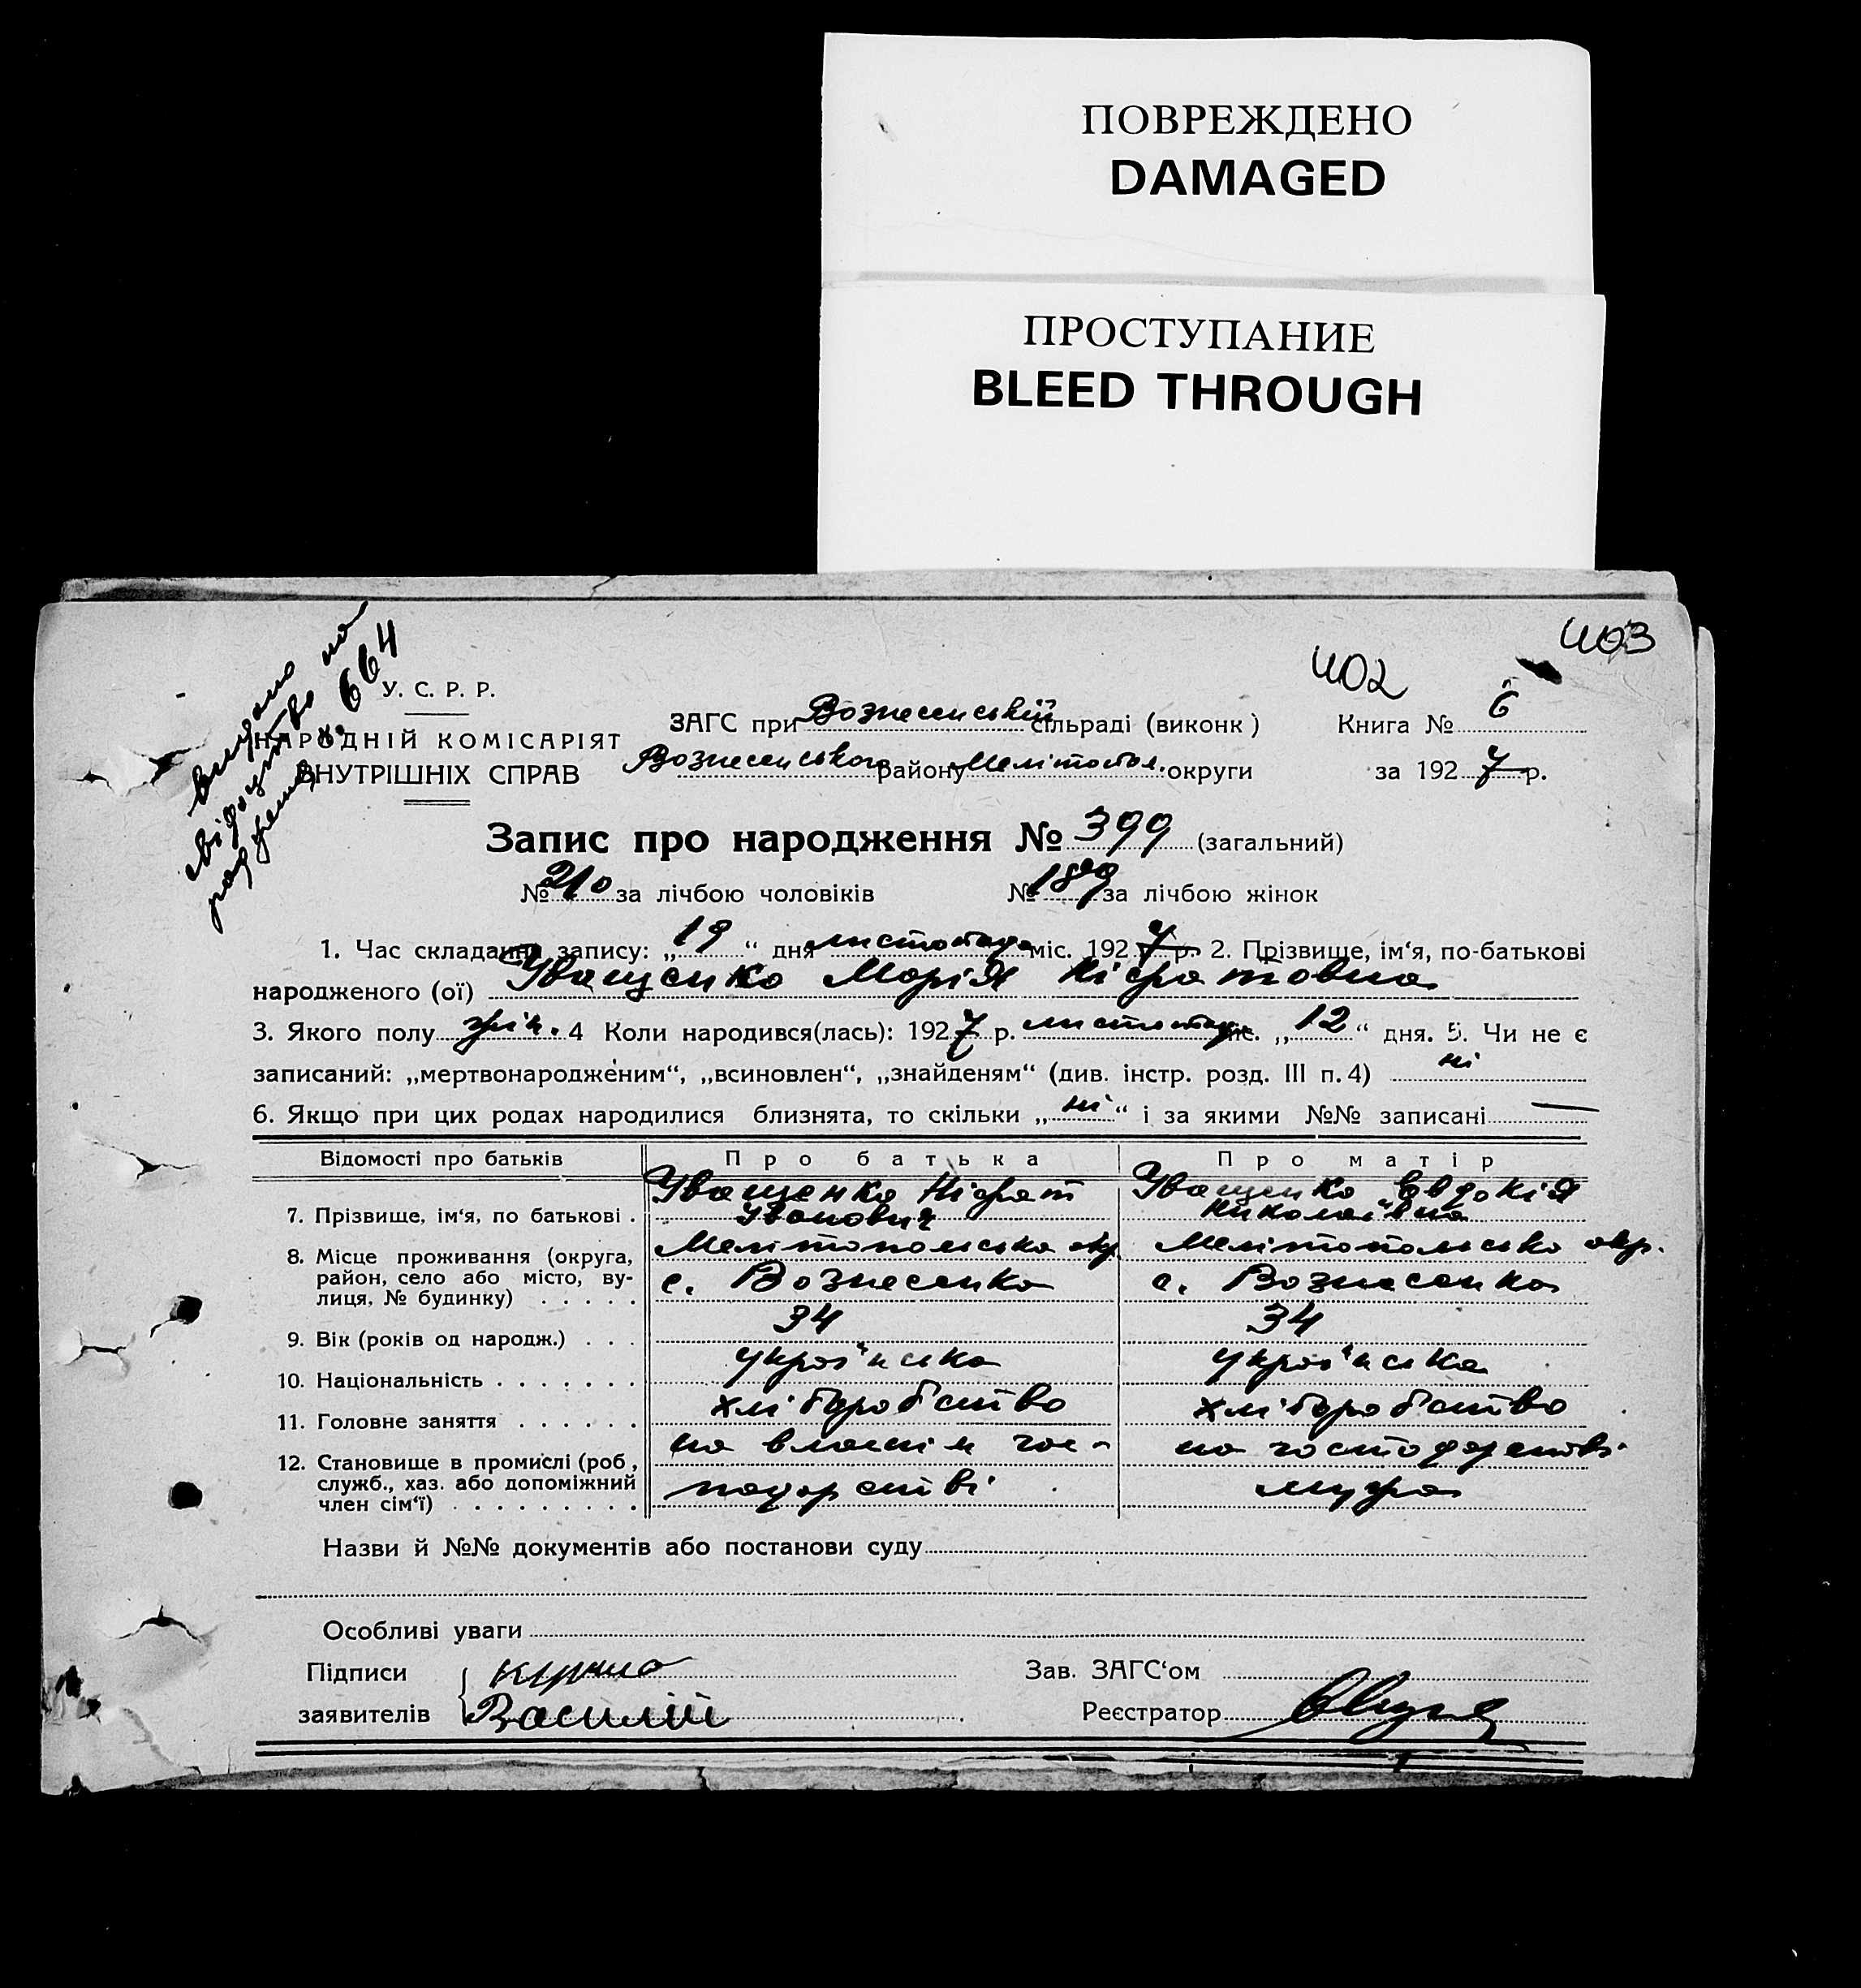 ПОВРЕЖДЕНО
DAMAGED
ПРОСТУПАНИЕ
BLEED THROUGH
403
402
видано на
свідоцтво
№ 664
У. С. Р. Р.
НАРОДНІЙ КОМІСАРІЯТ
ВНУТРІШНІХ СПРАВ
ЗАГС при Вознесенській сільраді (виконк)
Вознесенського району Мелітопол. округи
Книга № 6
за 1927 р.
Запис про народження № 399 (загальний)
№ 210 за лічбою чоловіків № 189 за лічбою жінок
1. Час складання запису: „19“ дня листопада міс. 1927 р. 2. Прізвище, ім‘я, по-батькові
народженого (ої) Іващенко Марія
3. Якого полу жін. 4 Коли народився(лась): 1927 р. листопада міс. „12“ дня. 5. Чи не є
записаний: „мертвонародженим“, „всиновлен“, „знайденям“ (див. інстр. розд. III п. 4) ні
6. Якщо при цих родах народилися близнята, то скільки „ні“ і за якими №№ записані —
Відомості про батьків Про батька Про матір
7. Прізвище, ім‘я, по батькові . Іващенко Іванович Іващенко Євдокія Николаївна
8. Місце проживання (округа, Мелітопольська окр. Мелітопольська окр.
район, село або місто, ву- с. Вознесенка с. Вознесенка
лиця, № будинку) . . . . .
9. Вік (років од народж.) . . . 34 34
10. Національність . . . . . . . українська українська
11. Головне заняття . . . . . . хліборобство хліборобство
12. Становище в промислі (роб, на власнім гос- на господарстві
служб., хаз. або допоміжний подарстві мужа
член сім‘ї) . . . . . . . . .
Назви й №№ документів або постанови суду
Особливі уваги
Підписи Зав. ЗАГС‘ом
заявителів Василій Реєстратор